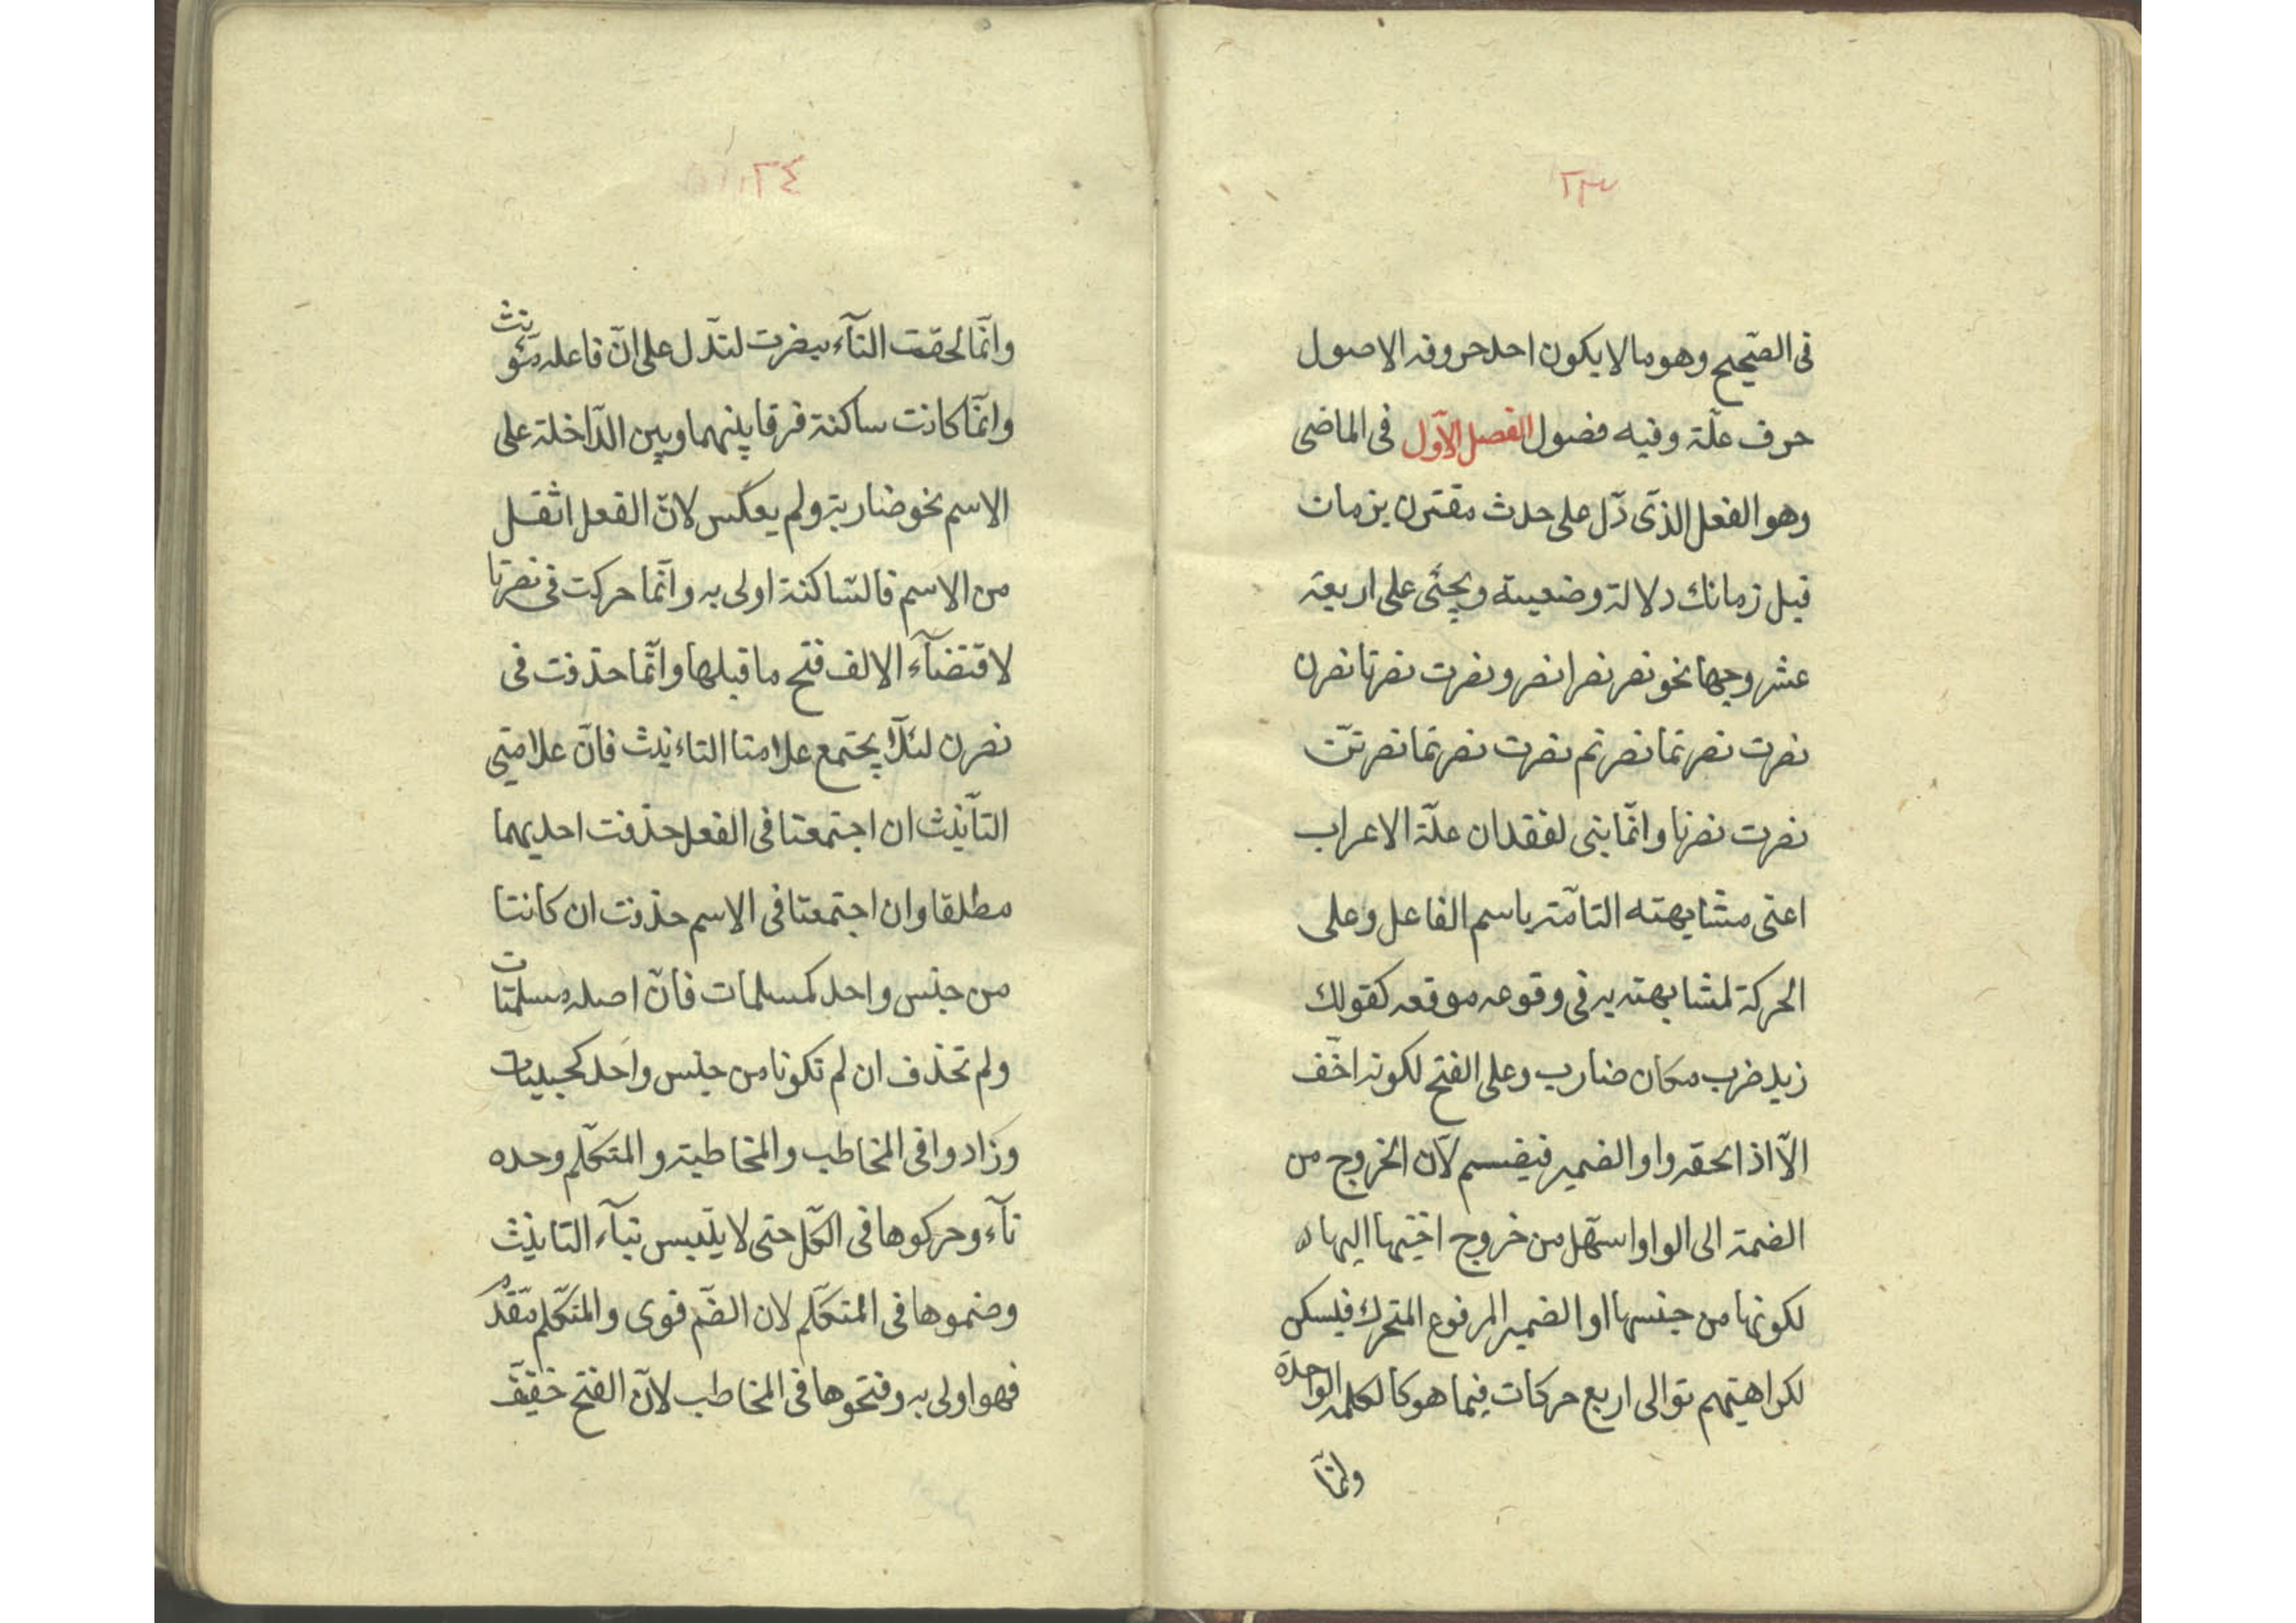 ٢٣
فى الصّحيح وهو ما لا يكون احد حروفه الاصول
حرف علّة وفيه فصول الفصل الاوّل فى الماضى
وهو الفعل الذّى دّل على حدث مقترن بزمان
قبل زمانك دلالة وضعية ويجئى على اربعة
عشر وجها نحو نصر نصرا نصرو نصرت نصرتا نصرن
نصرت نصرتما نصرتم نصرت نصرتما نصرتنّ
نصرت نصرنا وانمّا بنى لفقدان علّة الاعراب
اعنى مشابهته التامّة باسم الفاعل وعلى
الحركة لمشابهته به فى وقوعه موقعه كقولك
زيد ضرب مكان ضارب وعلى الفتح لكونه اخّف
الاّ اذا لحقه واو الضمير فيضم لانّ الخروج من
الضمة الى الواو اسهّل من خروج اختيها اليها
لكونها من جنسها او الضمير المرفوع المتحرك فيسكن
لكراهيتهم توالى اربع حركات فيما هو كالكلمة الواحدة
وانمّا
٢٤
وانمّا لحقت التآء بنصرت لتدّل على انّ فاعله مؤنث
وانمّا كانت ساكنة فرقا بينهما وبين الدّاخلة على
الاسم نحو ضاربة ولم يعكس لانّ الفعل اثقل
من الاسم فالسّاكنة اولى به وانّما حركت فى نصرتا
لاقتضآء الالف فتح ما قبلها وانّما حذفت فى
نصرن لئلاّ يجتمع علامتا التاءنيث فانّ علامتى
التأنيث ان اجتمعتا فى الفعل حذفت احديهما
مطلقا وان اجتمعتا فى الاسم حذفت ان كانتا
من جنس واحد كمسلمات فانّ اصله مسلمتات
ولم تحذف ان لم تكونا من جنس واحد كحبليات
وزادوا فى المخاطب والمخاطبة والمتكلّم وحده
تآء وحركوها فى الكّل حتى لا يلتبس بتآء التانيث
وضموها فى المتكلّم لان الضّم قوى والمتكلّم مقّدم
فهو اولى به وفتحوها فى المخاطب لانّ الفتح خفيف